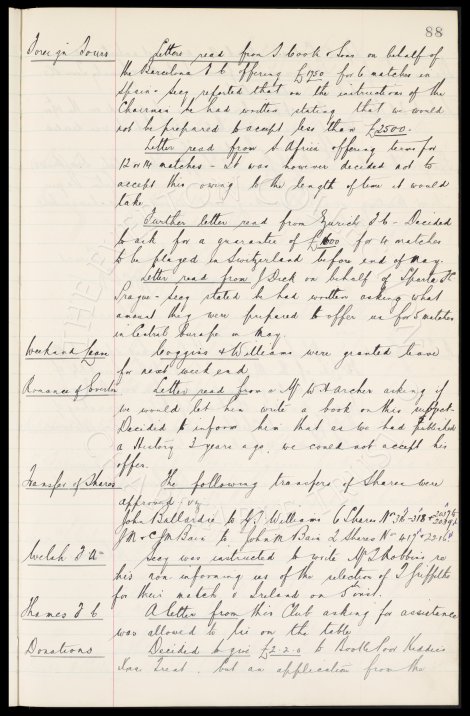 88
Foreign Tours Letters read from T. Cook & Sons on behalf of
the Barcelona F C offering £1750 for 6 matches in
Spain - Secy reported that on the instructions of the
Chairman he had written stating that we would
not be prepared to accept less than £2500.
Letter read from S Africa offering terms for
12 or 14 matches - It was however decided not to
accept this owing to the length of time it would
take.
Further letter read from Zurich F C - Decided
to ask for a guarantee of £1600 for 4 matches
to be played in Switzerland before end of May.
Letter read from J Dick on behalf of Sparta FC
Prague - Secy stated he had written asking what
amount they were prepared to offer us for 5 matches
in Central Europe in May.
Weekend leave Coggins & Williams were granted leave
for next week end
Romance of Everton Letter read from Mr W H Archer asking if
we would let him write a book on this subject.
Decided to inform him that as we had published
a History 3 years ago, we could not accept his
offer.
Transfer of Shares The following transfers of Shares were
approved: viz
John Ballardie to G J Williams 6 Shares Nos
to John M Bain 2 Shares Nos 417 + 2216
Welsh F A - Secy was instructed to write Mr T Robbins re
his non informing us of the selection of T Griffiths
for their match v Ireland on 5th inst.
Thames F C A letter from this Club asking for assistance
was allowed to lie on the table
Donations Decided to give £2.2.0 to Bootle Poor Kiddies
Treat, but an application from the